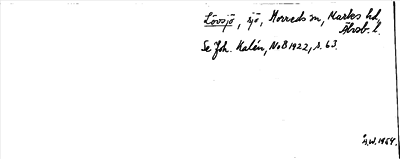 Lövsjö, sjö, Horreds sn, Marks hd,
Älvsb. l.
Se Joh. Kalén, NoB 1922, s. 63.
A.W. 1964.